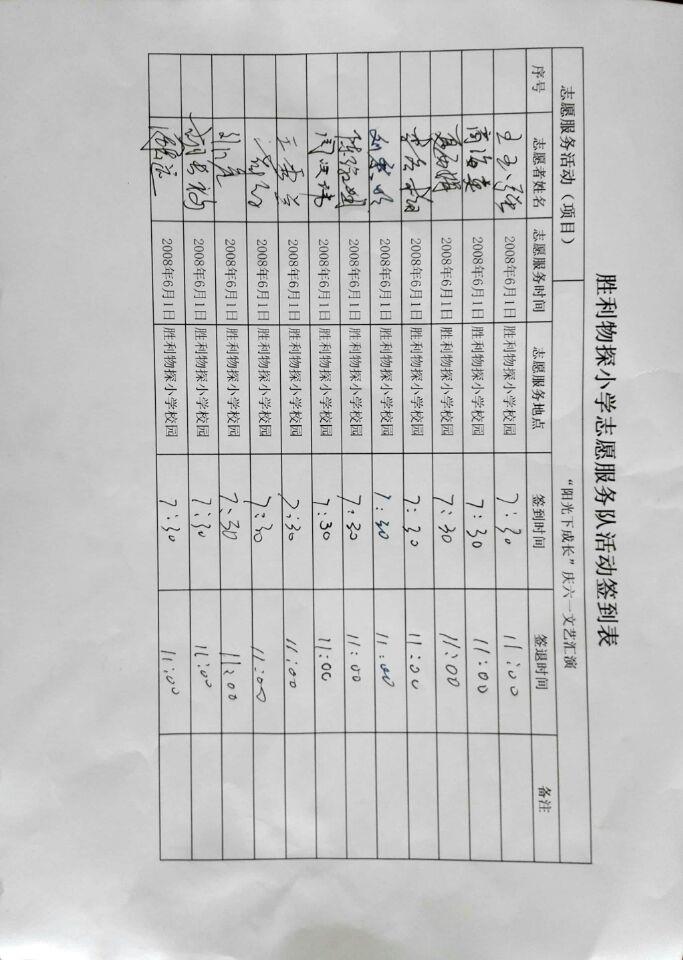 胜利物探小学志愿服务队活动签到表
志愿服务活动（项目） “阳光下成长”庆六一文艺汇演
序号 志愿者姓名 志愿服务时间 志愿服务地点 签到时间 签退时间 备注
2008年6月1日 胜利物探小学校园 7:30 11:00
高海英 2008年6月1日 胜利物探小学校园 7:30 11:00
2008年6月1日 胜利物探小学校园 7:30 11:00
2008年6月1日 胜利物探小学校园 7:30 11:00
2008年6月1日 胜利物探小学校园 7:30 11:00
2008年6月1日 胜利物探小学校园 7:30 11:00
2008年6月1日 胜利物探小学校园 7:30 11:00
2008年6月1日 胜利物探小学校园 7:30 11:00
2008年6月1日 胜利物探小学校园 7:30 11:00
2008年6月1日 胜利物探小学校园 7:30 11:00
2008年6月1日 胜利物探小学校园 7:30 11:00
2008年6月1日 胜利物探小学校园 7:30 11:00